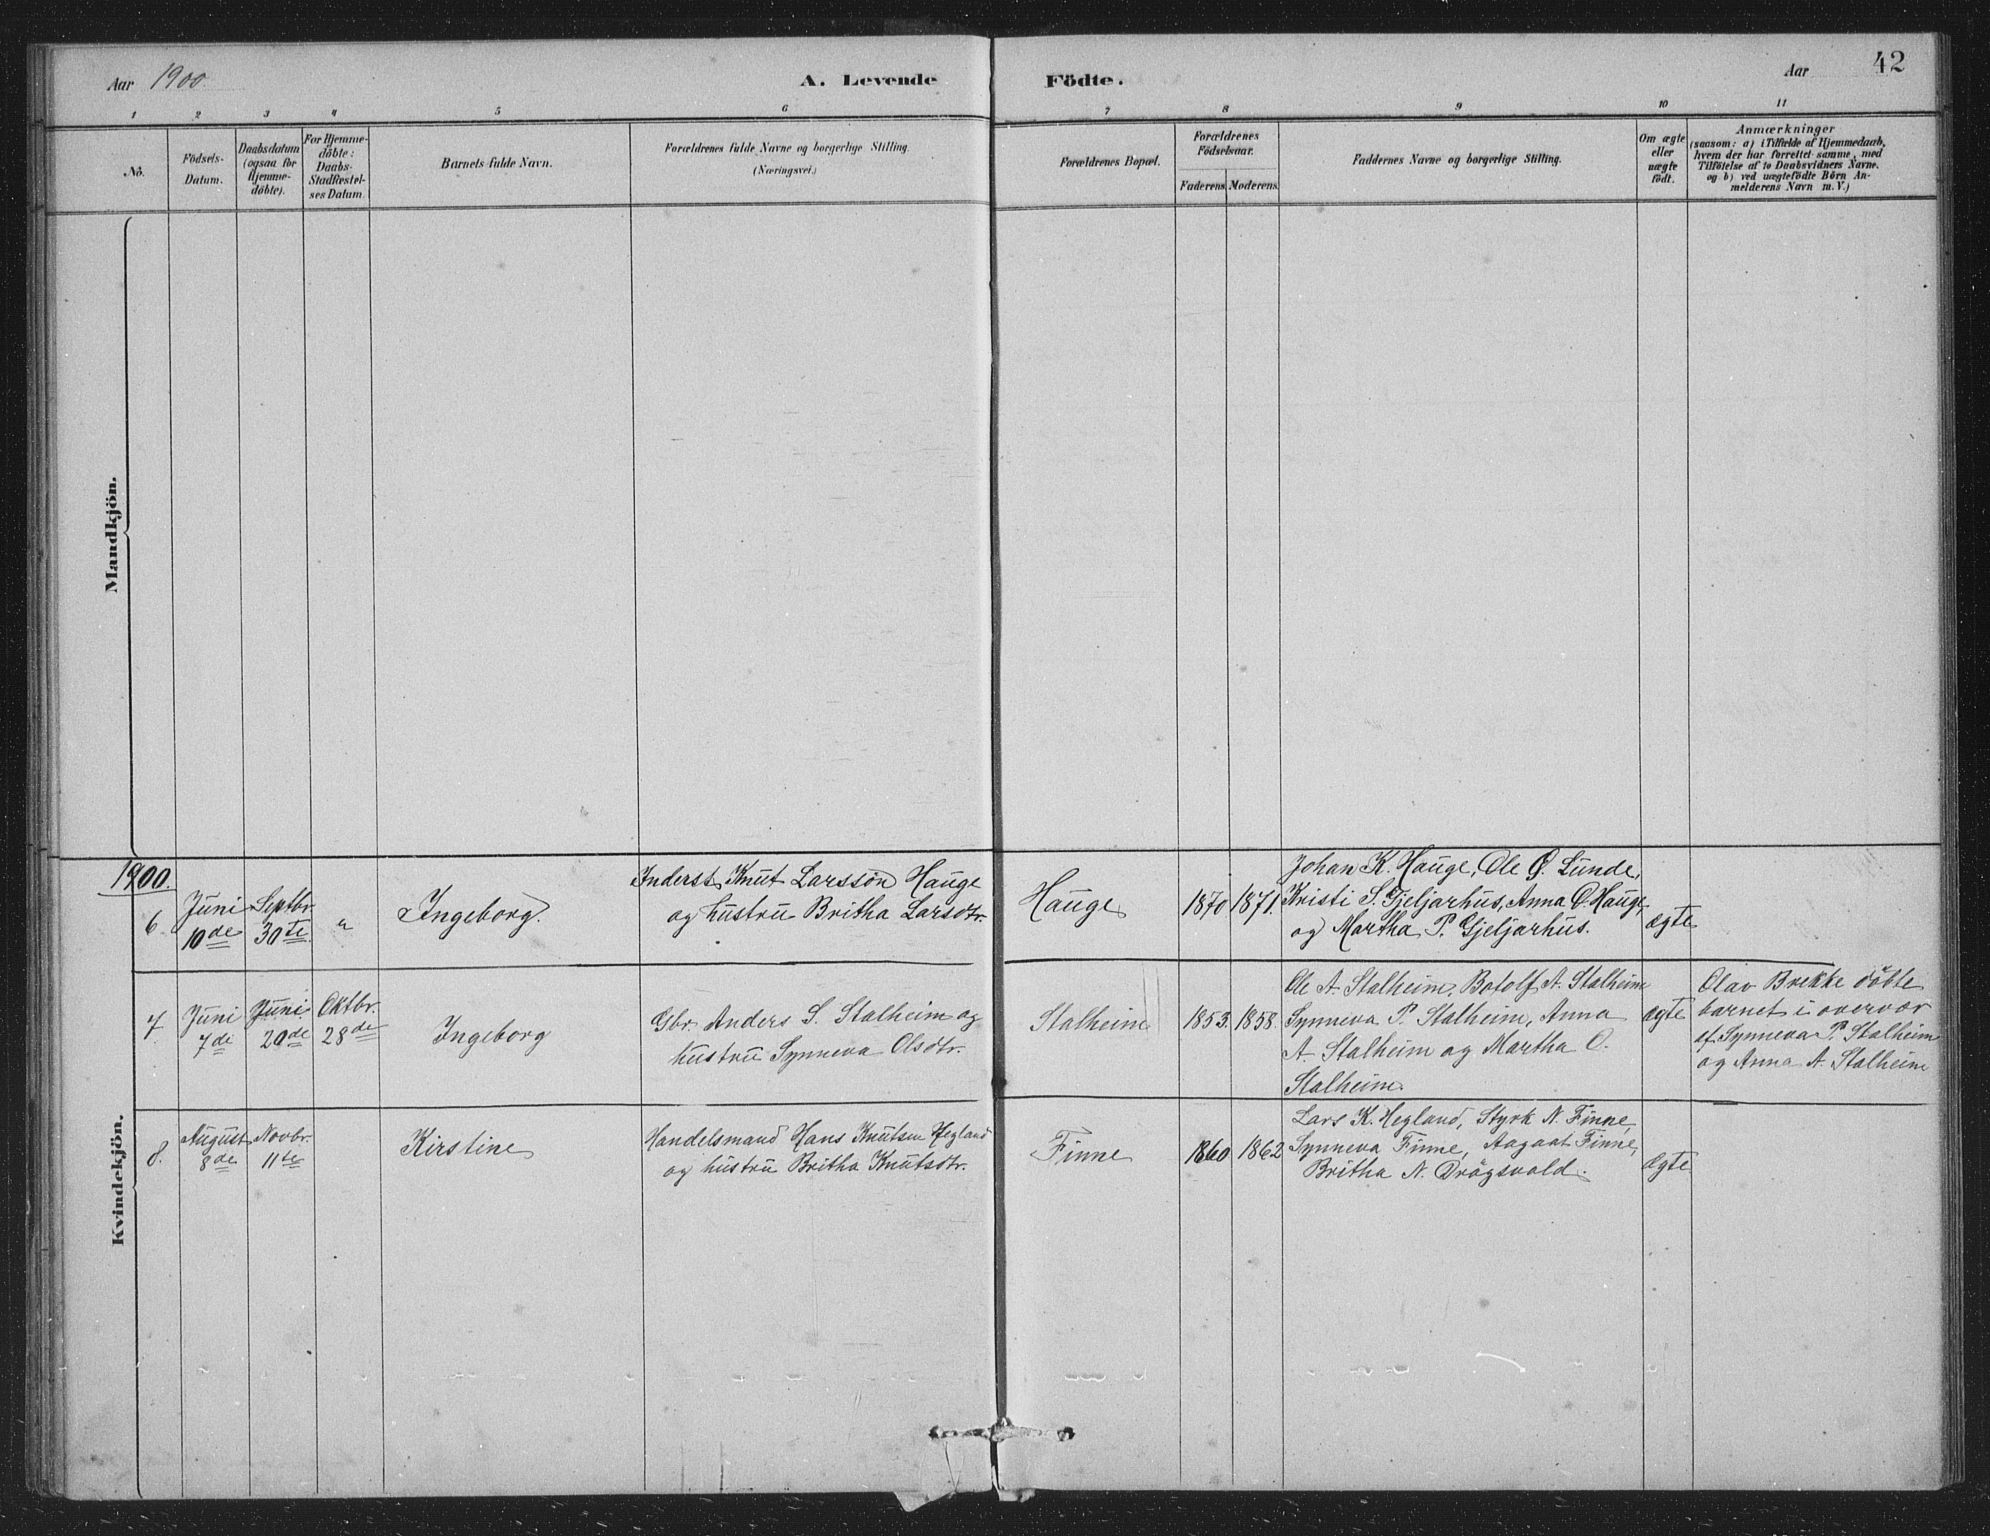 Aar 1900.
A. Levende
Födte.
Aar
42
1 2 3 4 5 6 7 8 9 10 11
No.
Födsels-
Datum.
Daabsdatum
(ogsaa for
Hjemme-
döbte).
For Hjemme-
döbte:
Daabs-
Stadfæstel-
ses Datum.
Barnets fulde Navn.
Forældrenes fulde Navne og borgerlige Stilling.
(Næringsvei.)
Forældrenes Bopæl.
Forældrenes
Födselsaar.
Faderens. Moderens.
Faddernes Navne og borgerlige Stilling.
Om ægte
eller
uægte
födt.
Anmærkninger
(saasom: a) i Tilfælde af Hjemmedaab,
hvem der har forrettet samme, med
Tilföielse af to Daabsvidners Navne.
og b) ved uægtefödte Börn An-
melderens Navn m. V.)
Mandkjön.
Kvindekjön.
1900.
6
Juni
10de
Septbr.
30te
"
Ingeborg.
Inderst Knut Larssön Hauge
og hustru Britha Larsdtr.
Hauge
1870 1871.
Johan K. Hauge, Ole O. Lunde,
Kristi S. Gjeljarhus, Anna O. Hauge,
og Martha P. Gjeljarhus.
Ægte
7
Juni
7de
Juni
20de
Oktbr.
28de
Ingeborg
Gbr. Anders S. Stalheim og
hustru Synneva Olsdtr.
Stalheim
1853. 1858.
Ole A. Stalheim, Botolf A. Stalheim
Synneva P. Stalheim, Anna
A. Stalheim og Martha O.
Stalheim.
Ægte
Olav Brekke döbte
barnet i overvær
af Synneva P. Stalheim
og Anna A. Stalheim
8.
August
8de
Novbr.
11te
Kirstine
Handelsmand Hans Knutsen Hegland
og hustru Britha Knutsdtr.
Finne
1860 1862
Lars K. Hegland, Styrk N. Finne,
Synneva Finne, Aagaat Finne,
Britha N. Drögsvold.
Ægte